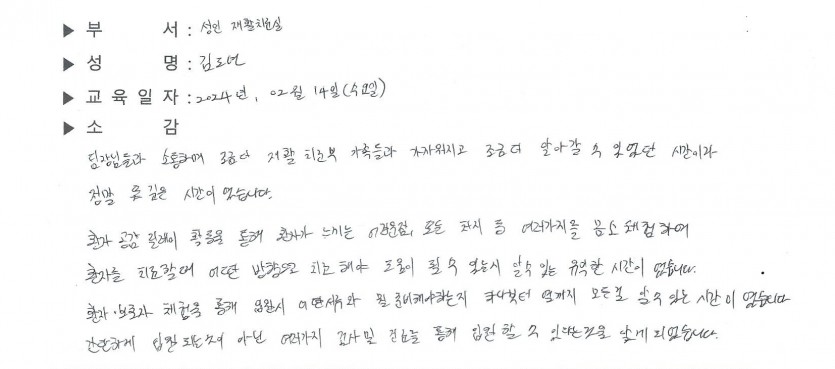 ▶ 부 서 : 성인 재활치료실
▶ 성 명 : 김도연
▶ 교육일자 : 2024년, 02월 14일(수요일)
▶ 소 감
팀장님들과 소통하며 조금더 재활 치료부 가족들과 가까워지고 조금 더 알아갈 수 있었던 시간이라
정말 뜻 깊은 시간이 였습니다.
환자 공감 릴레이 활동을 통해 환자가 느끼는 어려운점, 모든 처치 등 여러가지를 몸소 체험하여
환자를 치료할때 어떤 방향으로 치료해야 도움이 될 수 있는지 알수 있는 유익한 시간이 였습니다.
환자·보호자 체험을 통해 입원시 어떤서류와 뭘 준비해야하는지 하나부터 열까지 모든걸 알 수 있는 시간이 였습니다
간단하게 입원 되는것이 아닌 여러가지 검사 및 진료를 통해 입원 할 수 있다는것을 알게 되었습니다.